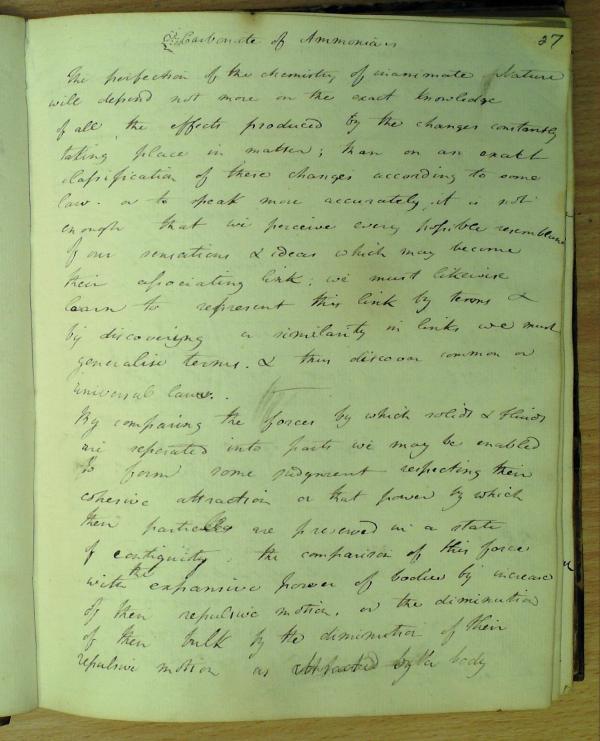 Carbonate of Ammonia
37
The perfection of the chemistry of inanimate Nature
will depend not more on the exact knowledge
of all the effects produced by the changes constantly
taking place in matter; than on an exact
classification of these changes according to some
law. or to speak more accurately it is not
enough that we perceive every possible resemblance
of our sensations & ideas which may become
their associating link; we must likewise
learn to represent this link by terms &
by discovering a similarity in links we must
generalise terms. & thus discover common or
universal laws.
By comparing the forces by which solids & fluids
are seperated into parts we may be enabled
to form some judgment respecting their
cohesive attraction or that power by which
their particles are preserved in a state
of contiguity. the comparison of this force
with the expansive power of bodies by increase
of their repulsive motion. or the diminution
of their bulk by the diminution of their
repulsive motion as by the body